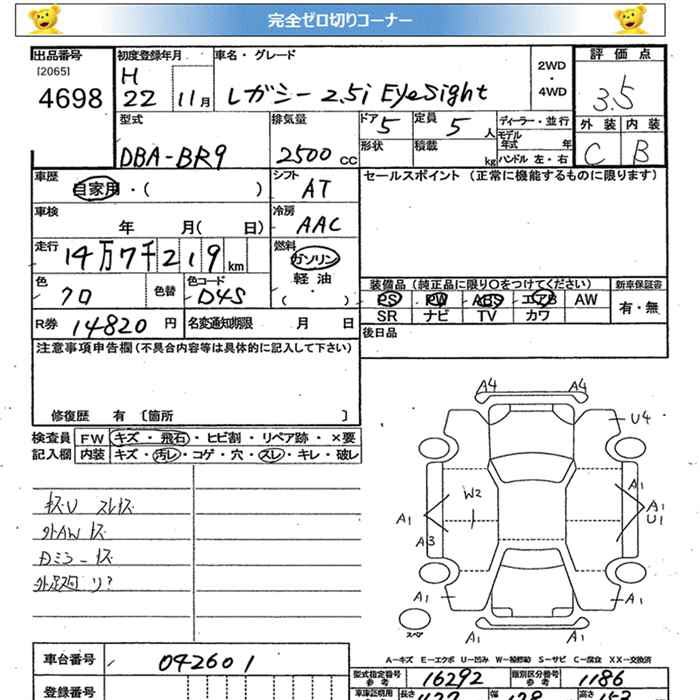 完全ゼロ切りコーナー
出品番号 初度登録年月 車名・グレード 評価点
[2065] H
4698 22 11月 レガシー 2.5i EyeSight 2WD・4WD 3.5
型式 排気量 ドア 定員 ディーラー・並行 外装 内装
5 5人 モデル年式 年
DBA-BR9 2500cc 形状 積載 kg ハンドル 左・右 C B
車歴 シフト セールスポイント(正常に機能するものに限ります)
自家用・( ) AT
車検 冷房
年 月( 日) AAC
走行 燃料
14万7千219km ガソリン
軽油
・( )
色 色替 色コード 装備品(純正品に限り〇をつけてください) 新車保証書
クロ D4S PS PW ABS エアB AW 有・無
SR ナビ TV カワ
R券 14820円 名変通知期限 月 日 後日品
注意事項申告欄(不具合内容等は具体的に記入して下さい)
修復歴 有 〔箇所 〕
検査員 FW キズ・飛石・ヒビ割・リペア跡・×要
記入欄 内装 キズ・汚レ・コゲ・穴・スレ・キレ・破レ
A4 A4
U4
W2
A1 A1
A1 U1
A3
A1 A1
A1 A1
スペア
外AW キズ
A-キズ E-エクボ U-凹み W-補修跡 S-サビ C-腐食 XX-交換済
車台番号 042601
型式指定番号 参考 16292 類別区分番号 参考 1186
登録番号 車庫証明用 参考 長さ 幅 高さ